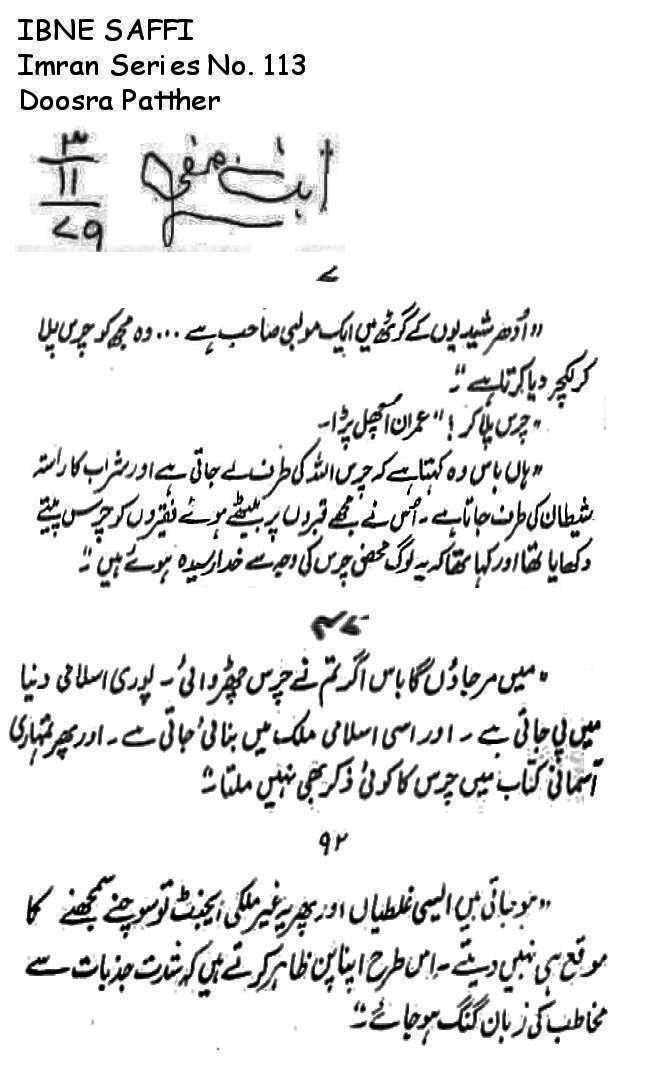 IBNE SAFFI
Imran Series No. 113
Doosra Patther
ابن صفی
۳
۱۱
۷۹
۷
"اُدھر شیدیوں کے گوٹھ میں ایک مولبی صاحب ہے ... وہ مجھ کو چرس پلا
کر لکچر دیا کرتا ہے"۔
"چرس پلا کر!" عمران اُچھل پڑا۔
"ہاں باس وہ کہتا ہے کہ چرس اللہ کی طرف لے جاتی ہے اور شراب کا راستہ
شیطان کی طرف جاتا ہے۔ اُس نے مجھے قبروں پر بیٹھے ہوئے فقیروں کو چرس پیتے
دکھایا تھا اور کہا تھا کہ یہ لوگ محض چرس کی وجہ سے خدا رسیدہ ہوئے ہیں"۔
۴۷
"میں مر جاؤں گا باس اگر تم نے چرس چھڑوائی۔ پوری اسلامی دنیا
میں پی جاتی ہے۔ اور اسی اسلامی ملک میں بنائی جاتی ہے۔ اور پھر تمہاری
آسمانی کتاب میں چرس کا کوئی ذکر بھی نہیں ملتا"۔
۹۲
"ہو جاتی ہیں ایسی غلطیاں اور پھر یہ غیر ملکی ایجنٹ تو سوچنے سمجھنے کا
موقع ہی نہیں دیتے۔ اس طرح اپنا پن ظاہر کرتے ہیں کہ شدت جذبات سے
مخاطب کی زبان گنگ ہو جائے"۔